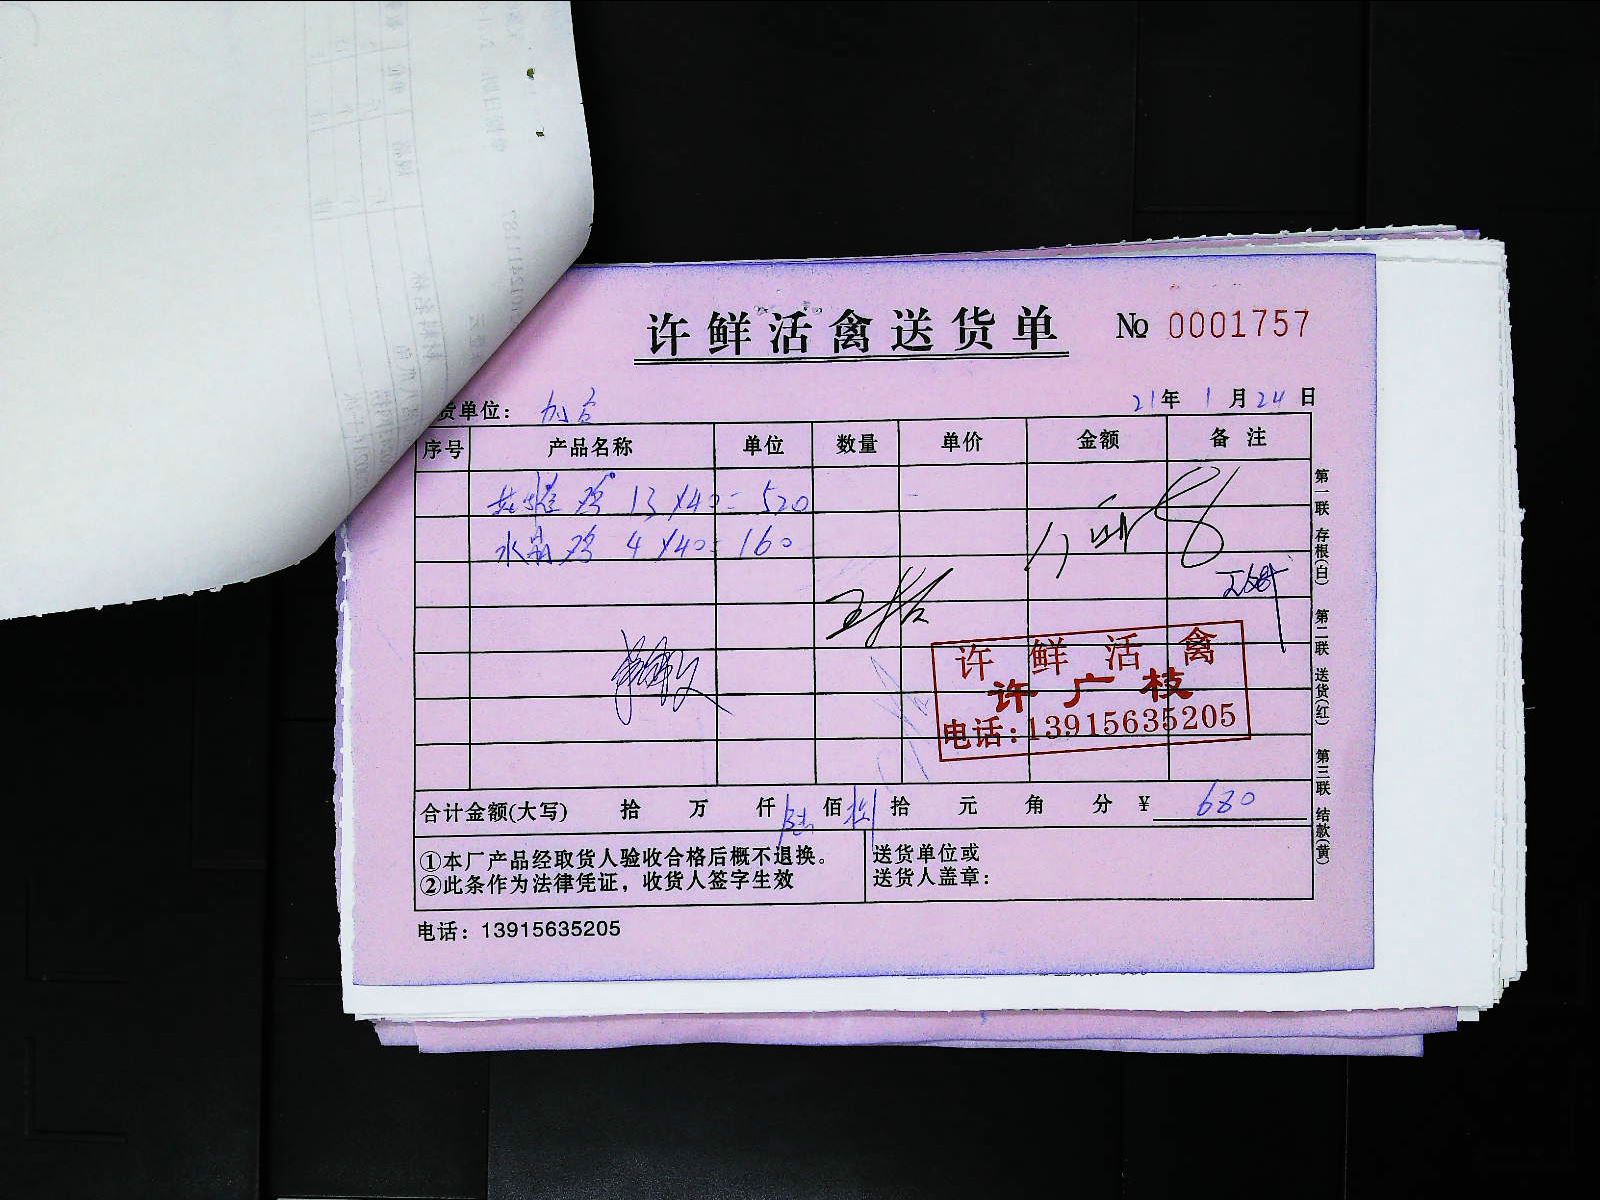 许鲜活禽送货单 № 0001757
货单位：
21年1月24日
序号 产品名称 单位 数量 单价 金额 备注
鸡 13×40=520
水晶鸡 4×40=160
许鲜活禽
许广枝
电话:13915635205
合计金额(大写) 拾 万 仟 陆 佰 捌 拾 元 角 分 ¥ 680
①本厂产品经取货人验收合格后概不退换。
②此条作为法律凭证，收货人签字生效
送货单位或
送货人盖章：
电话：13915635205
第一联 存根(白) 第二联 送货(红) 第三联 结款(黄)